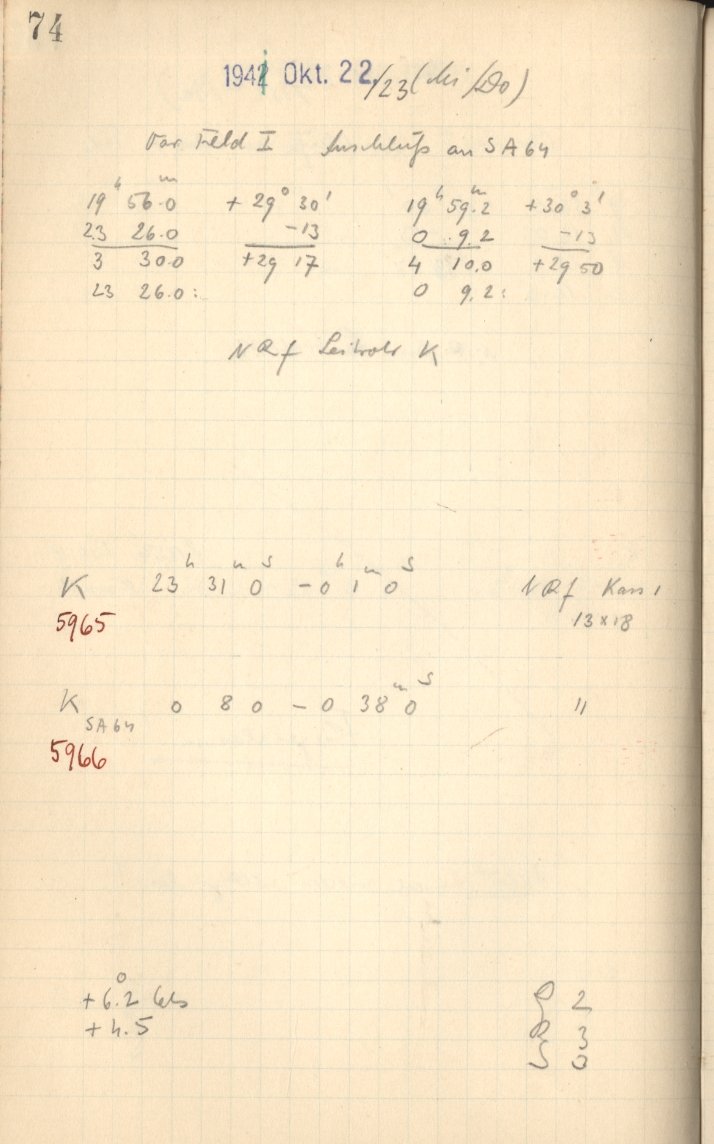 74
1941 Okt. 22./23 (Mi/Do)
Var Feld I Anschluß an SA 64
19h 56m.0 +29° 30' 19h 59m.2 +30° 3'
23 26.0 -13 0 9.2 -13
3 30.0 +29 17 4 10.0 +29 50
23 26.0: 0 9.2:
NRf Leitrohr K
K 23h 31m 0s - 0h 1m 0s NRf Kass 1
5965 13×18
K SA64 0 8 0 - 0 38m 0s "
5966
+6°.2
+4.5
2
R 3
S 0